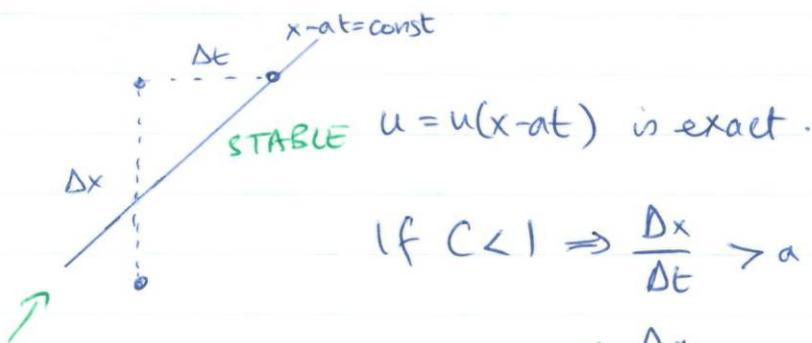 x-at=const
Δt
STABLE u = u(x-at) is exact.
Δx
If C<1 ⇒ Δx/Δt > a
Δx